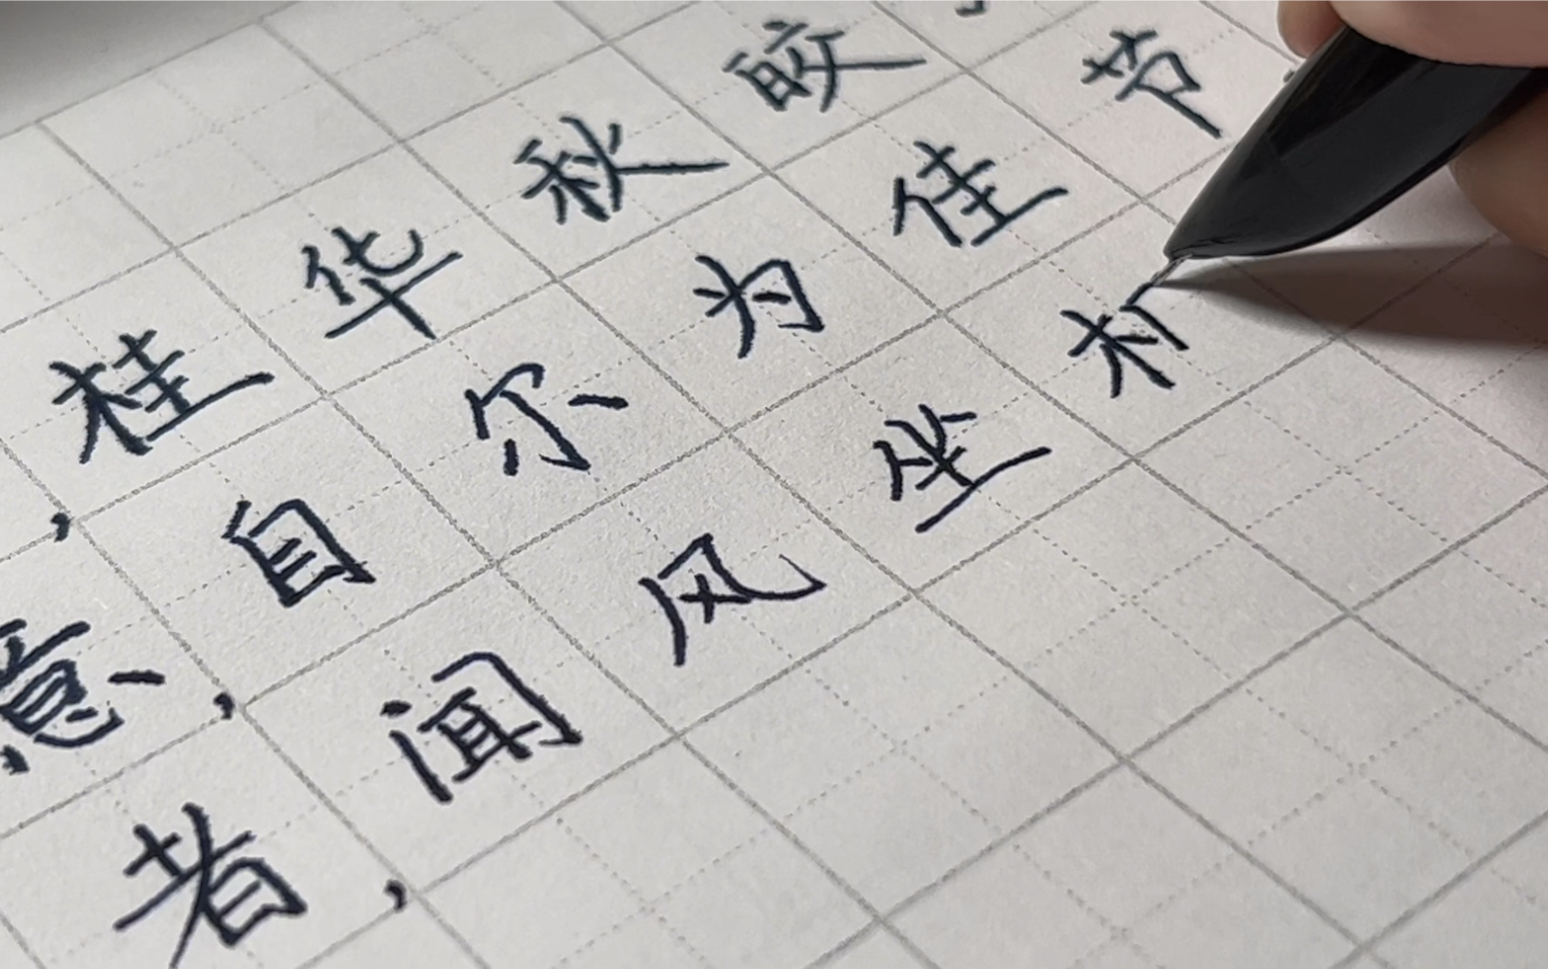 ，桂华秋皎
意，自尔为佳节
者，闻风坐